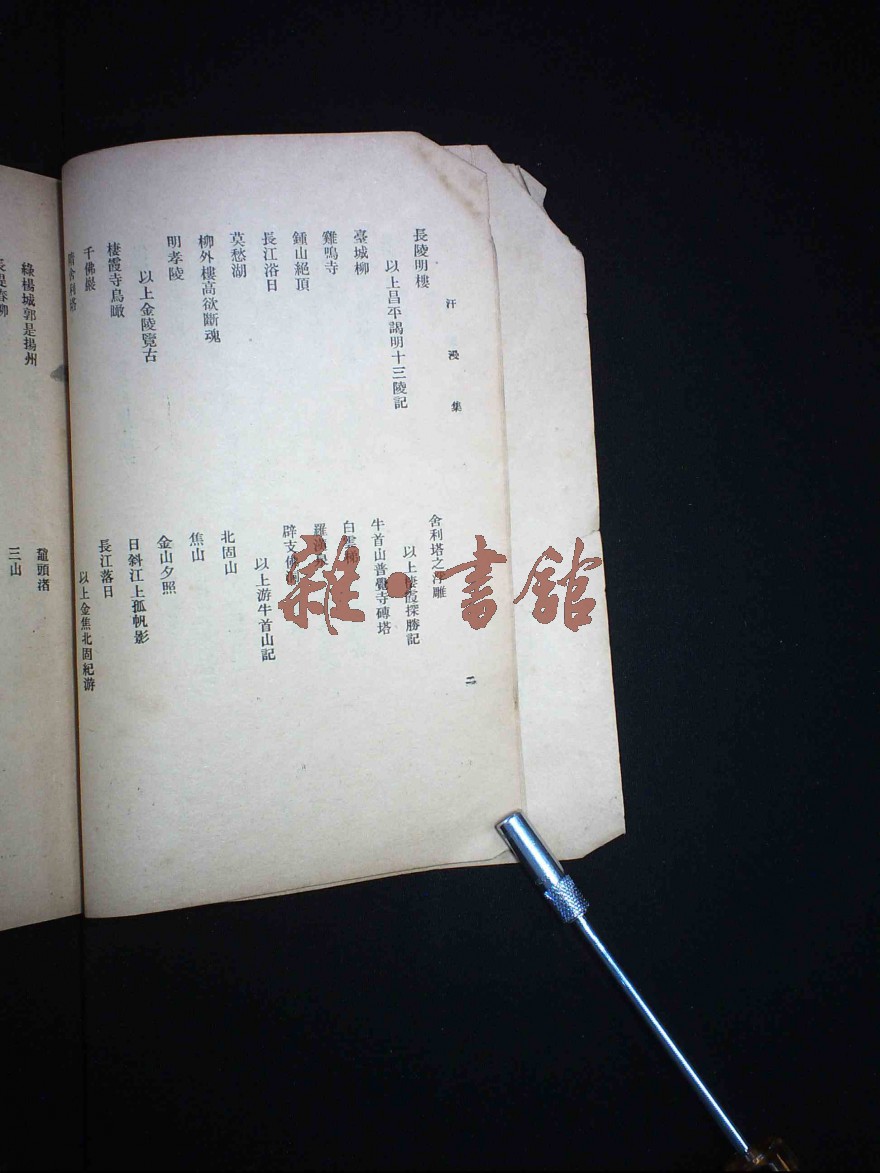 汗漫集
長陵明樓
以上昌平謁明十三陵記
臺城柳
雞鳴寺
鍾山絕頂
長江浴日
莫愁湖
柳外樓高欲斷魂
明孝陵
以上金陵覽古
棲霞寺鳥瞰
千佛巖
隋舍利塔
舍利塔之浮雕
以上棲霞探勝記
牛首山普覺寺磚塔
白雲梯
羅漢泉
辟支佛洞
以上游牛首山記
北固山
焦山
金山夕照
日斜江上孤帆影
長江落日
以上金焦北固紀游
二
綠楊城郭是揚州
長堤春柳
黿頭渚
三山
雜·書館